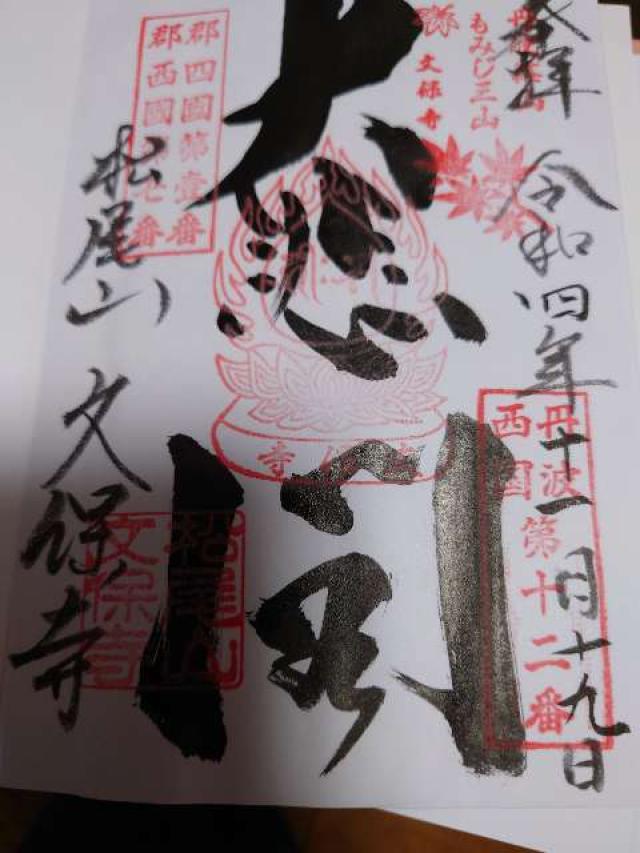 奉拝
令和四年
十一月十九日
丹波篠山
もみじ三山
文保寺
丹波
西国
第十二番
大悲閣
郡四國第壹番
郡西國第七番
松尾山
文保寺
松尾山
文保寺